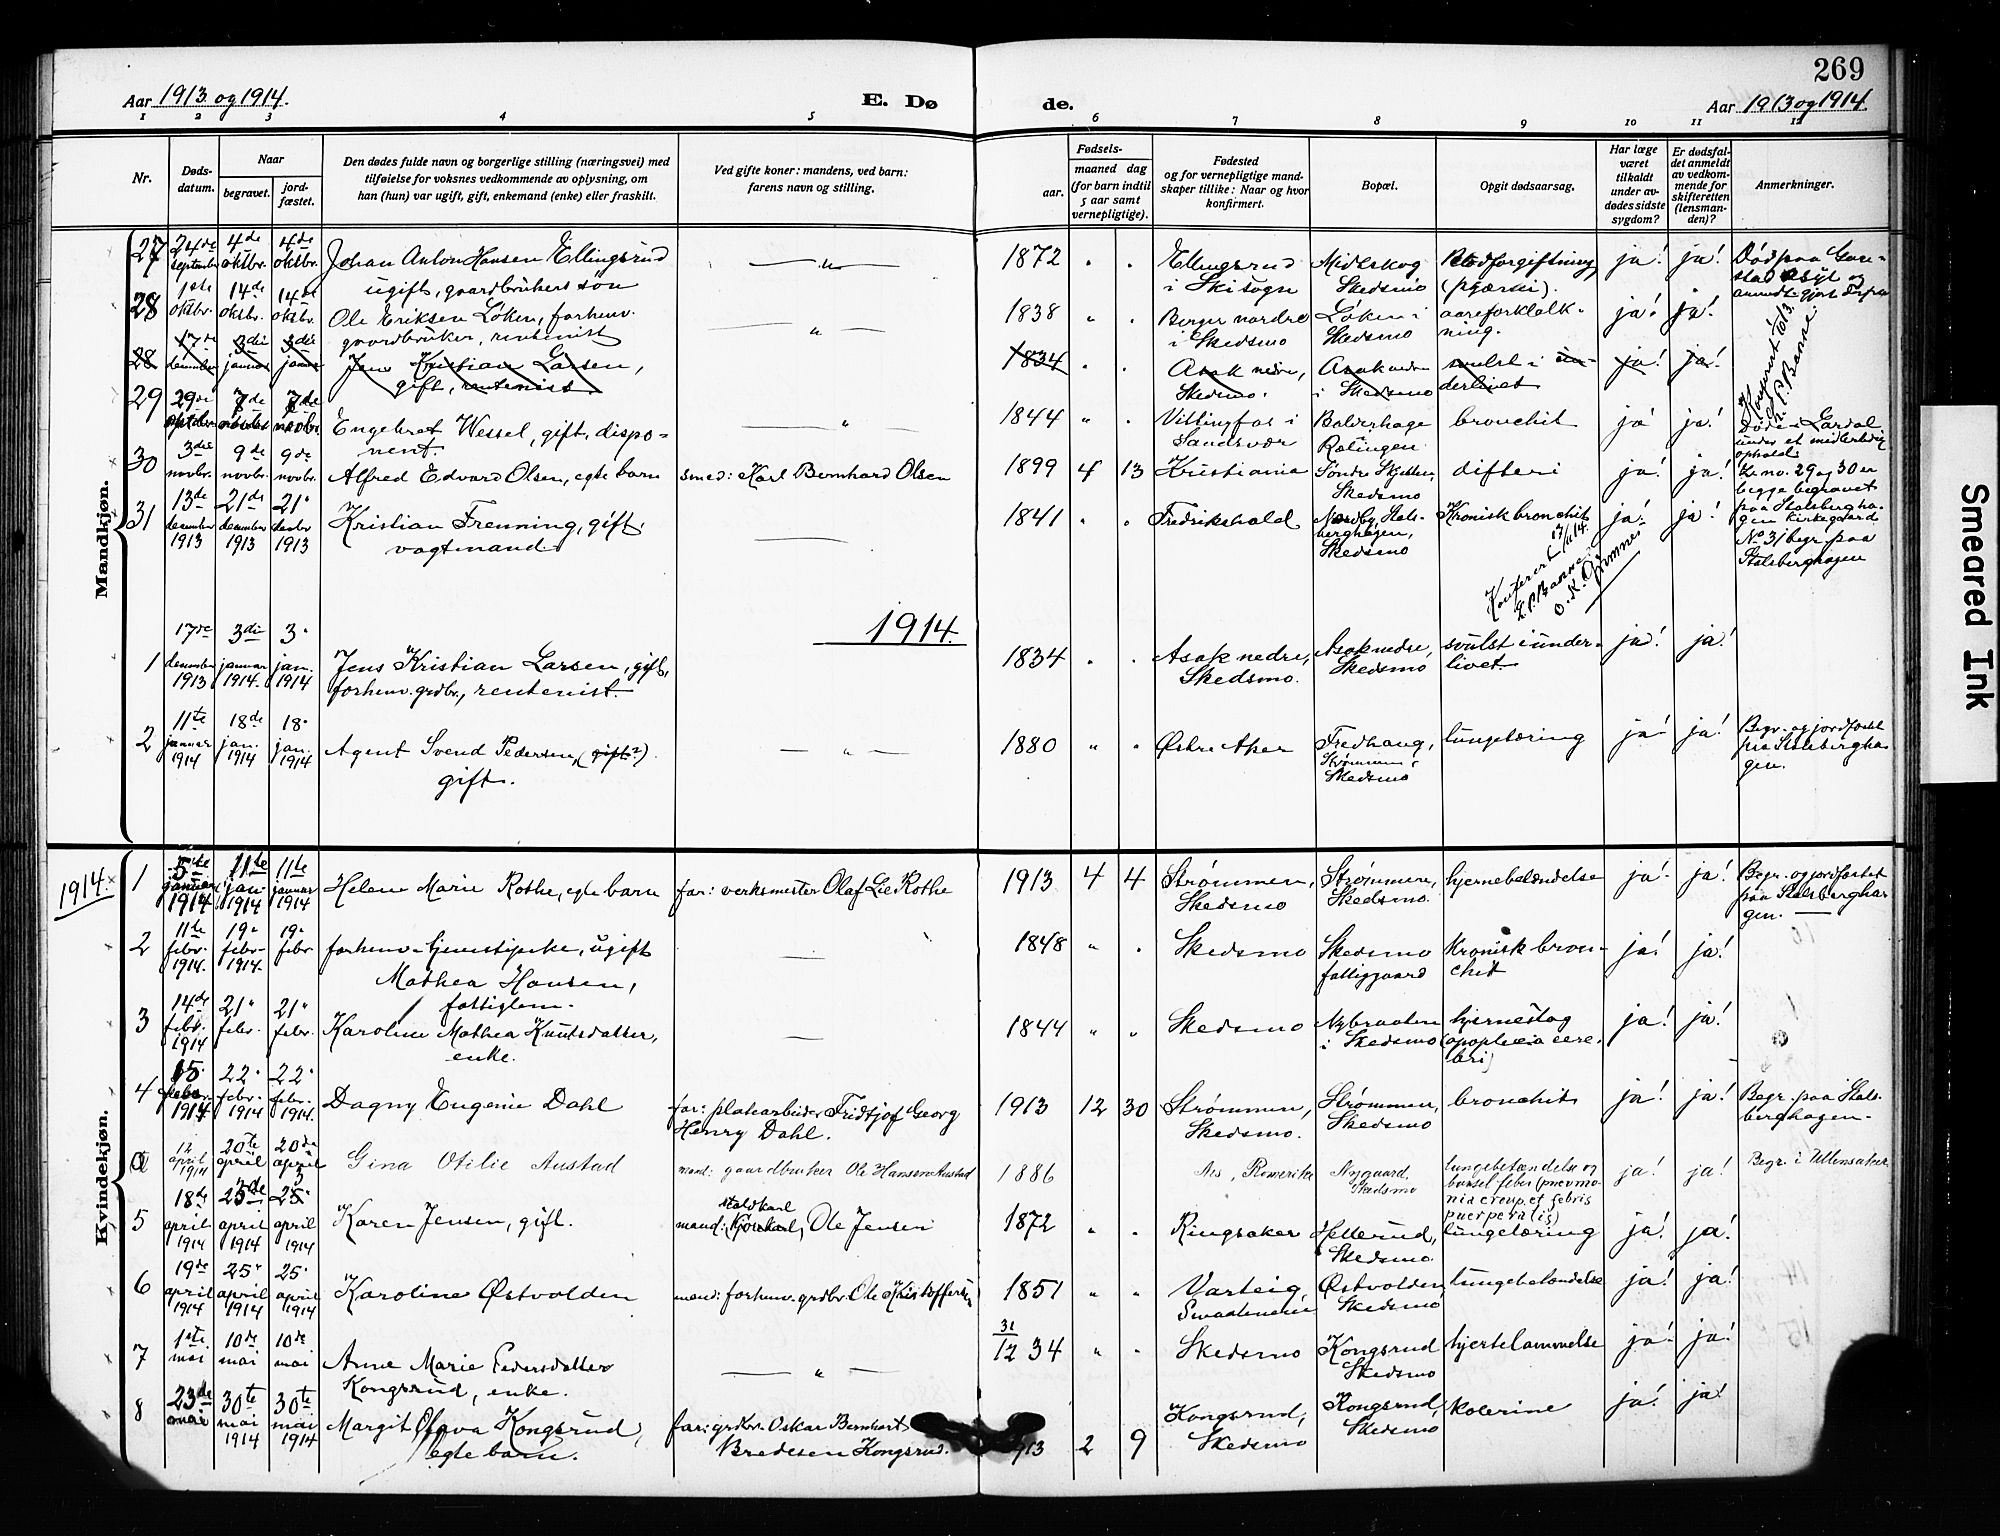 269
Aar 1913 og 1914.
E. Dø
de.
Aar 1913 og 1914.
1 2 3 4 5 6 7 8 9 10 11 12
Nr.
Døds-
datum.
Naar
begravet.
jord-
fæstet.
Den dødes fulde navn og borgerlige stilling (næringsvei) med
tilføielse for voksnes vedkommende av oplysning, om
han (hun) var ugift, gift, enkemand (enke) eller fraskilt.
Ved gifte koner: mandens, ved barn:
farens navn og stilling.
Fødsels-
aar.
maaned dag
(for barn indtil
5 aar samt
vernepligtige).
Fødested
og for vernepligtige mand-
skaper tillike: Naar og hvor
konfirmert.
Bopæl.
Opgit dødsaarsag.
Har læge
været
tilkaldt
under av-
dødes sidste
sygdom?
Er dødsfal-
det anmeldt
av vedkom-
mende for
skifteretten
(lensman-
den)?
Anmerkninger.
Mandkjøn.
27 24de september 4de oktbr. 4de oktbr. Johan Anton Hansen Ellingsrud — " — 1872 " " Ellingsrud Midtskog Blodforgiftning ja! ja! Død paa Gau-
ugift, gaardbrukers søn i Ski sogn Skedsmo (pyæmi). stad asyl og
28 1ste oktbr. 14de oktbr. 14de oktbr. Ole Eriksen Løken, forhenv. — " — 1838 " " Berger nordre Løken i aareforkalk- ja! ja!
gaardbruker, rentenist i Skedsmo Skedsmo ning.
28 17de december 3die januar 3die januar Jens Kristian Larsen, 1834 " " Asak nedre, Asak nedre svulst i un- ja! ja!
gift, rentenist. Skedsmo. i Skedsmo derlivet
29 29de 7de 7de novbr. Engebret Wessel, gift, dispo- — " — 1844 " " Vittingfos i bronchit ja! ja! Døde i Lardal
nent. Sandsvær Rælingen under et midlertidig
ophold.
30 3die novbr. 9de novbr. 9de novbr. Alfred Edvard Olsen, egte barn smed: Karl Bernhard Olsen 1899 4 13 Kristiania Søndre Skjetten, difteri ja! ja! Likene no. 29 og 30 er
Skedsmo begge begravet
31 13de december 1913 21de december 1913 21. decbr 1913 Kristian Frenning, gift, — 1841 " " Fredrikshald Nordby, Stals- Kronisk bronchit ja! ja! paa Stalsbergha-
vagtmand berghagen, gen kirkegaard
Skedsmo No 31 begr. paa
Stalsberghagen
Konferert 17/11 14.
E. P. Banne.
1914.
1 17de december 1913 3die januar 1914. 3. jan. 1914 Jens Kristian Larsen, gift, 1834 " " Asak nedre, Asak nedre, svulst i under- ja! ja!
forhenv. grdbr., rentenist. Skedsmo. Skedsmo livet.
2 11te januar 1914 18de jan. 1914 18. jan. 1914 Agent Svend Pedersen, (gift?) — " — 1880 " " Østre Aker Fredhaug, lungetæring ja! ja! Begr. og jordfæstet
gift. Strømmen i paa Stalsbergha-
Skedsmo gen.
1914.
Kvindekjøn.
1 5te januar 1914 11te jan. 1914 11te januar 1914 Helene Marie Rothe, egte barn far: verksmester Olaf Lie Rothe 1913 4 4 Strømmen, Strømmen, hjernebetændelse ja! ja! Begr. og jordfæstet
Skedsmo Skedsmo. paa Stalsbergha-
gen. —
2 11te febr. 1914. 19. febr. 1914. 19. febr. forhenv. tjenestpike, ugift — 1848 " " Skedsmo Skedsmo Kronisk bron- ja! ja!
Mathea Hansen, fattiggaard chit
fattiglem.
3 14de febr. 1914 21. febr. 21. febr. Karoline Mathea Knutsdatter, — 1844 " " Skedsmo Nybraaten hjerneslag ja! ja!
enke. i Skedsmo (apoplexia cere-
bri)
4 15. febr. 1914 22. febr. 1914 22. febr. 1914. Dagny Eugenie Dahl far: platearbeider Fridtjof Georg 1913 12 30 Strømmen, Strømmen, bronchit ja! ja! Begr. paa Stals-
Henry Dahl. Skedsmo. Skedsmo berghagen.
a 12 april 1914 20de april 20de april Gina Otilie Austad mand: gaardbruker Ole Hansen Austad 1886 Nes, Romerike Nygaard, lungebetændelse og ja! ja! Begr. i Ullensaker
Skedsmo barsel feber (pnevmo-
nia croup. et febris
puerperalis)
5 18de april 1914 25de april 1914 25. april 1914 Karen Jensen, gift. mand: staldkarl, Ole Jensen 1872 " " Ringsaker Hellerud, lungetæring ja! ja!
Skedsmo
6 19de april 1914 25. april 1914 25. april 1914 Karoline Østvolden mand: forhenv. grdbr. Ole Kristoffersen 1851 " " Varteig, Østvolden, lungebetændelse ja! ja!
Smaalenene Skedsmo
7 1ste mai 10de mai 10de mai Anne Marie Pedersdatter — " — 31/12 34 " " Skedsmo Kongsrud hjertelammelse ja! ja!
Kongsrud, enke. Skedsmo
8 23de mai 30te mai 1914 30te mai 1914 Margit Olava Kongsrud, far: grdbr. Oskar Bernhart 1913 2 9 Kongsrud, Kongsrud, kolerine ja! ja!
egte barn. Bredesen Kongsrud. Skedsmo Skedsmo
Smeared Ink